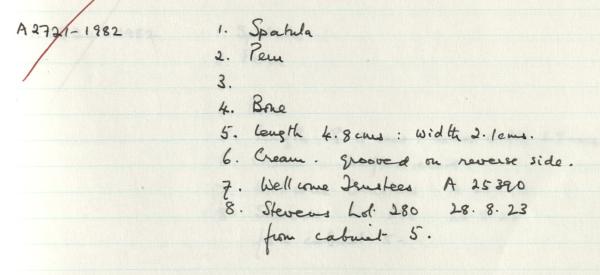 A2721-1982 1. Spatula
2. Peru
3.
4. Bone
5. Length 4.8cms : width 2.1cms.
6. Cream. grooved on reverse side.
7. Wellcome Trustees A 25390
8. Stevens Lot 280 28.8.23
from cabinet 5.